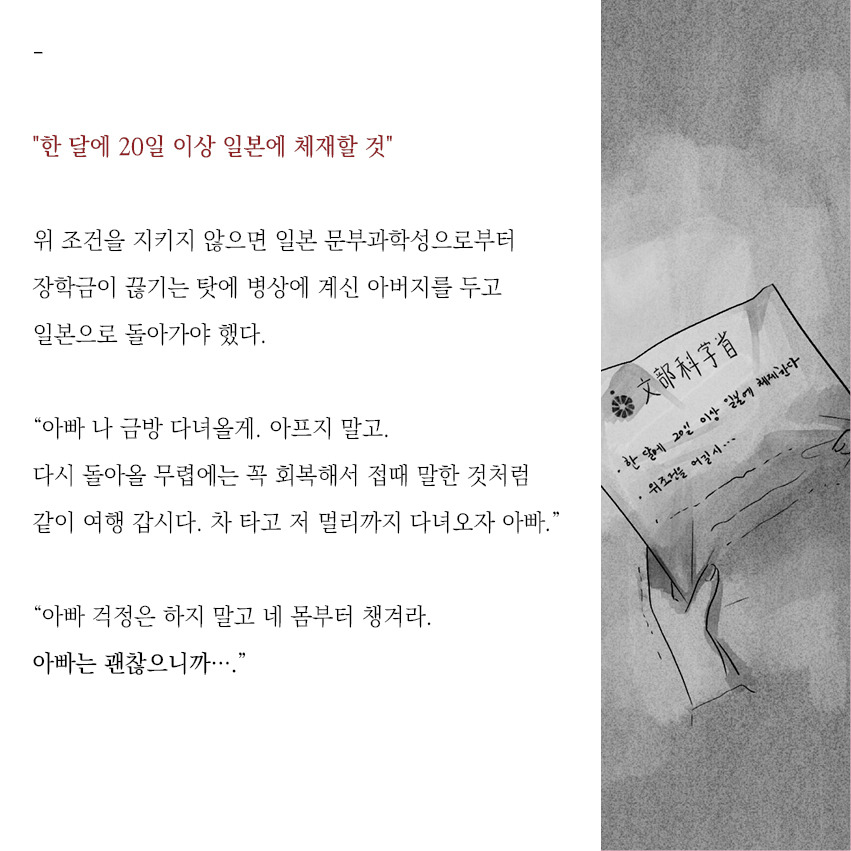 -
"한 달에 20일 이상 일본에 체재할 것"
위 조건을 지키지 않으면 일본 문부과학성으로부터
장학금이 끊기는 탓에 병상에 계신 아버지를 두고
일본으로 돌아가야 했다.
“아빠 나 금방 다녀올게. 아프지 말고.
다시 돌아올 무렵에는 꼭 회복해서 접때 말한 것처럼
같이 여행 갑시다. 차 타고 저 멀리까지 다녀오자 아빠.”
“아빠 걱정은 하지 말고 네 몸부터 챙겨라.
아빠는 괜찮으니까….”
文部科学省
· 한 달에 20일 이상 일본에 체제한다
· 위조건을 어길시...